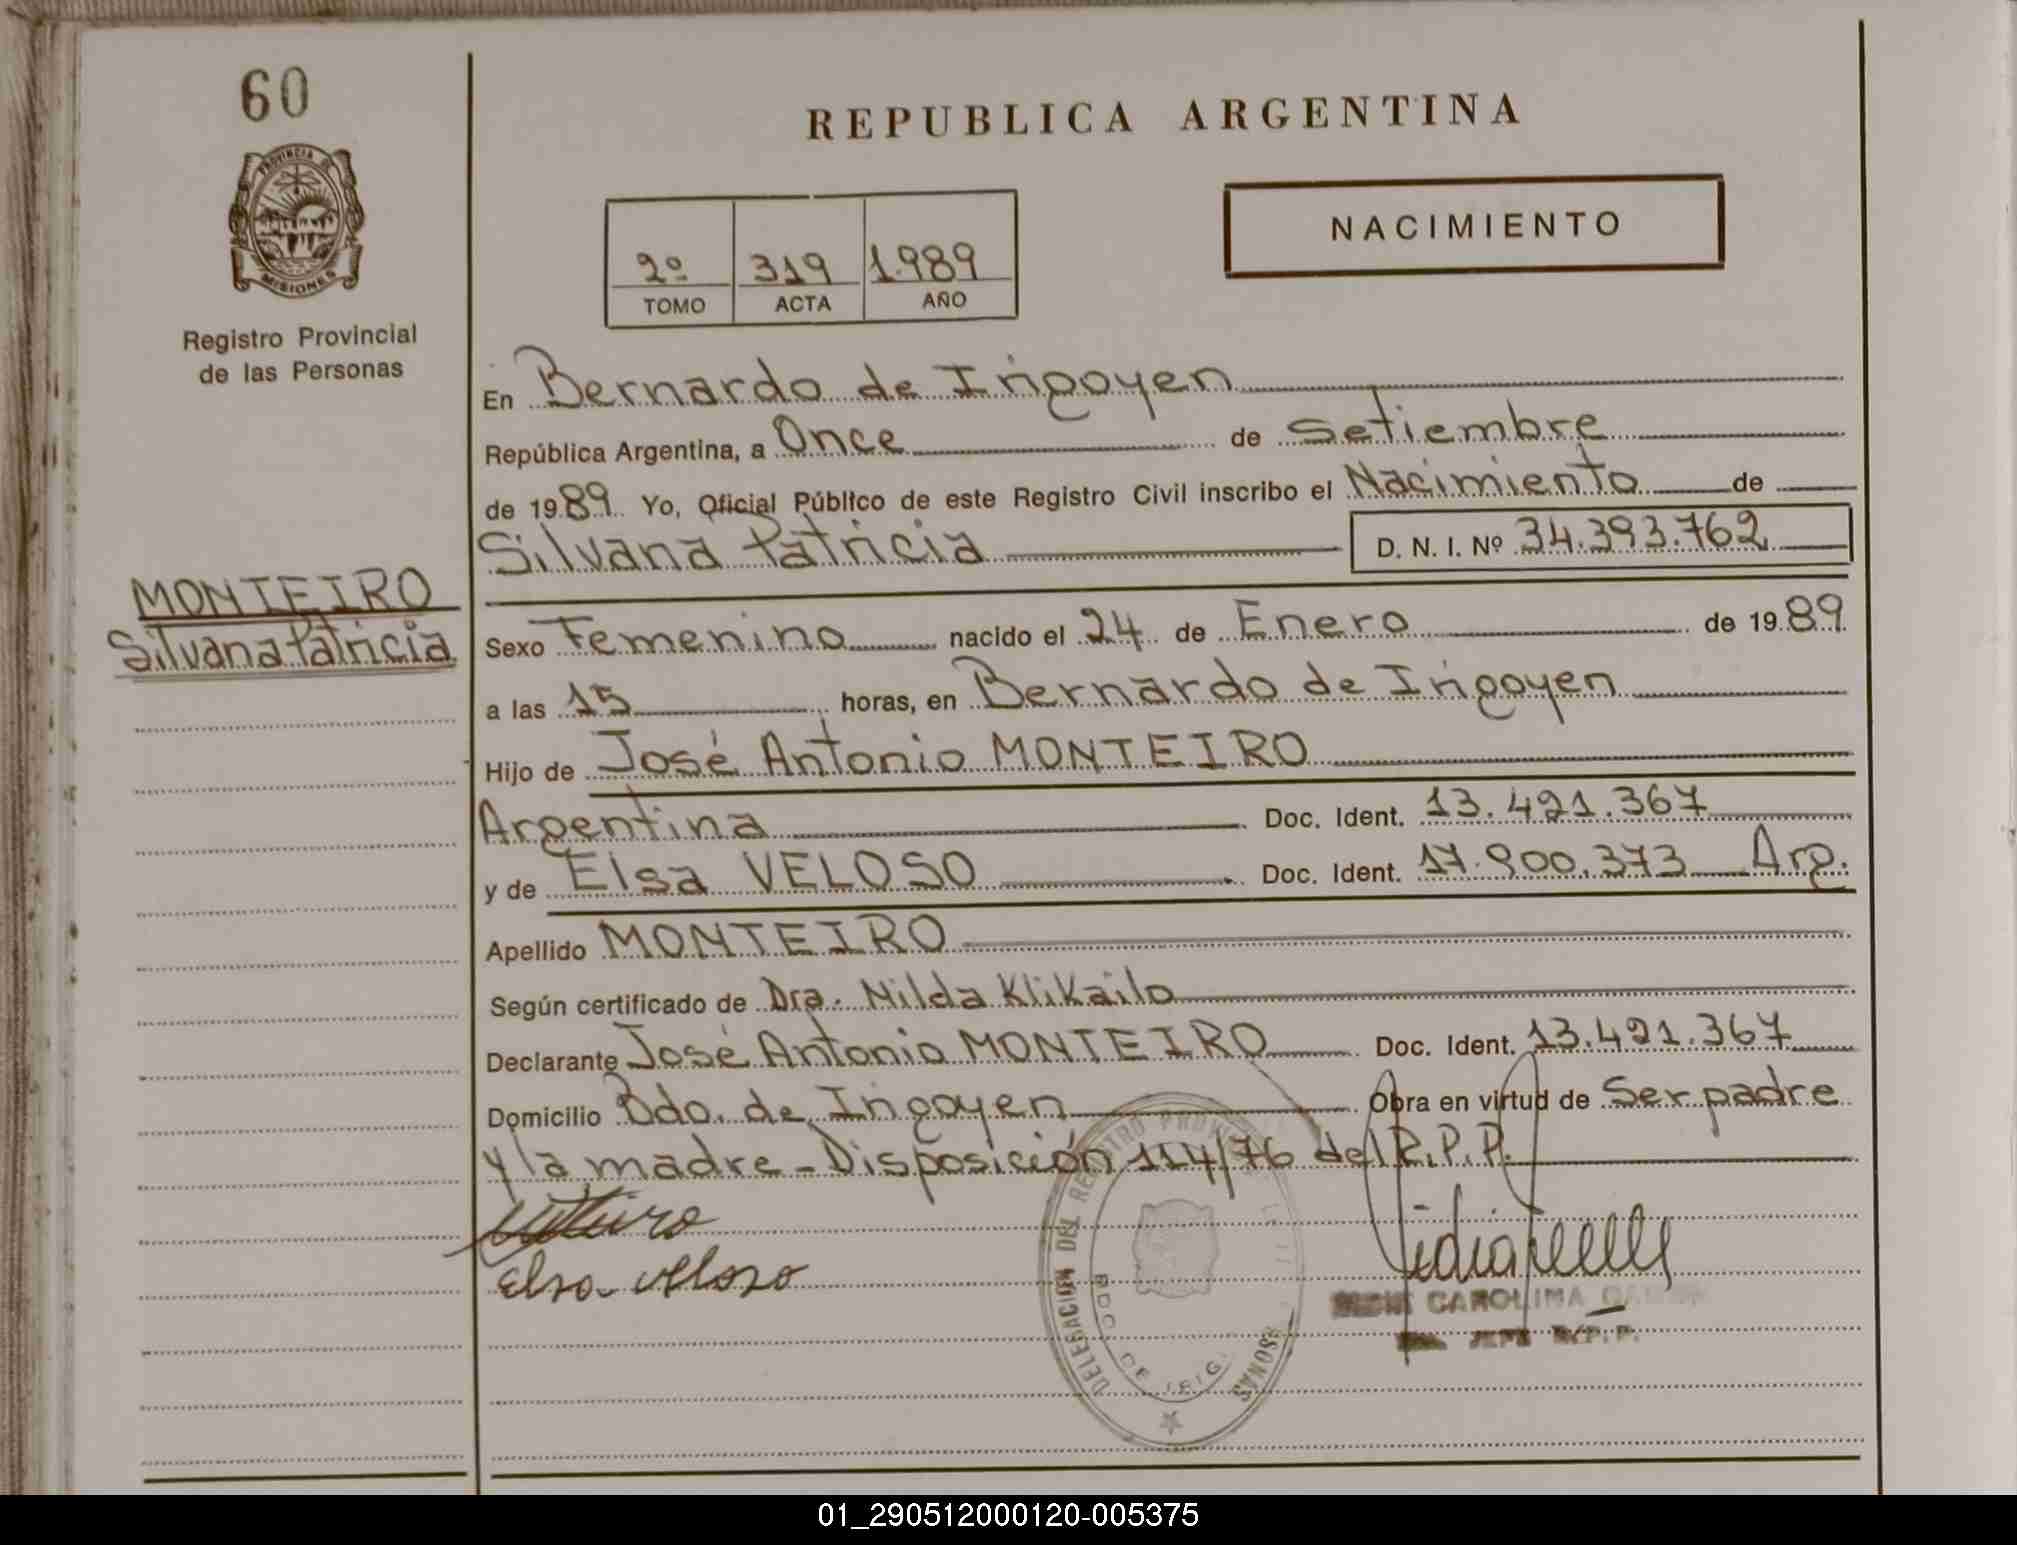 60
PROVINCIA DE
MISIONES
Registro Provincial
de las Personas
MONTEIRO
Silvana Patricia
REPUBLICA ARGENTINA
2º 319 1.989
TOMO ACTA AÑO
NACIMIENTO
En Bernardo de Irigoyen
República Argentina, a Once de Setiembre
de 1989 Yo, Oficial Público de este Registro Civil inscribo el Nacimiento de
Silvana Patricia D. N. I. Nº 34.393.762
Sexo Femenino nacido el 24 de Enero de 1989
a las 15 horas, en Bernardo de Irigoyen
Hijo de José Antonio MONTEIRO
Argentina Doc. Ident. 13.421.367
y de Elsa VELOSO Doc. Ident. 17.900.373 Arg.
Apellido MONTEIRO
Según certificado de Dra. Nilda Klikailo
Declarante José Antonio MONTEIRO Doc. Ident. 13.421.367
Domicilio Bdo. de Irigoyen Obra en virtud de Ser padre
y la madre - Disposición 114/76 del R.P.P.
Elsa Veloso
DELEGACION DEL REGISTRO
BDO. DE IRIG.
CAROLINA
JEFE R.P.P.
01_290512000120-005375